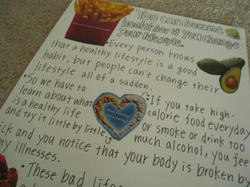 You can become
healthier if you change
your habits.
• Every person knows
that a healthy lifestyle is a good
habit, but people can't change their
lifestyle all of a sudden.
• So we have to
learn about what
is a healthy life
and try it little by little.
• If you take high-
calorie food everyday
or smoke or drink too
much alcohol, you fee
ick and you notice that your body is broken by
my illnesses.
• These bad life